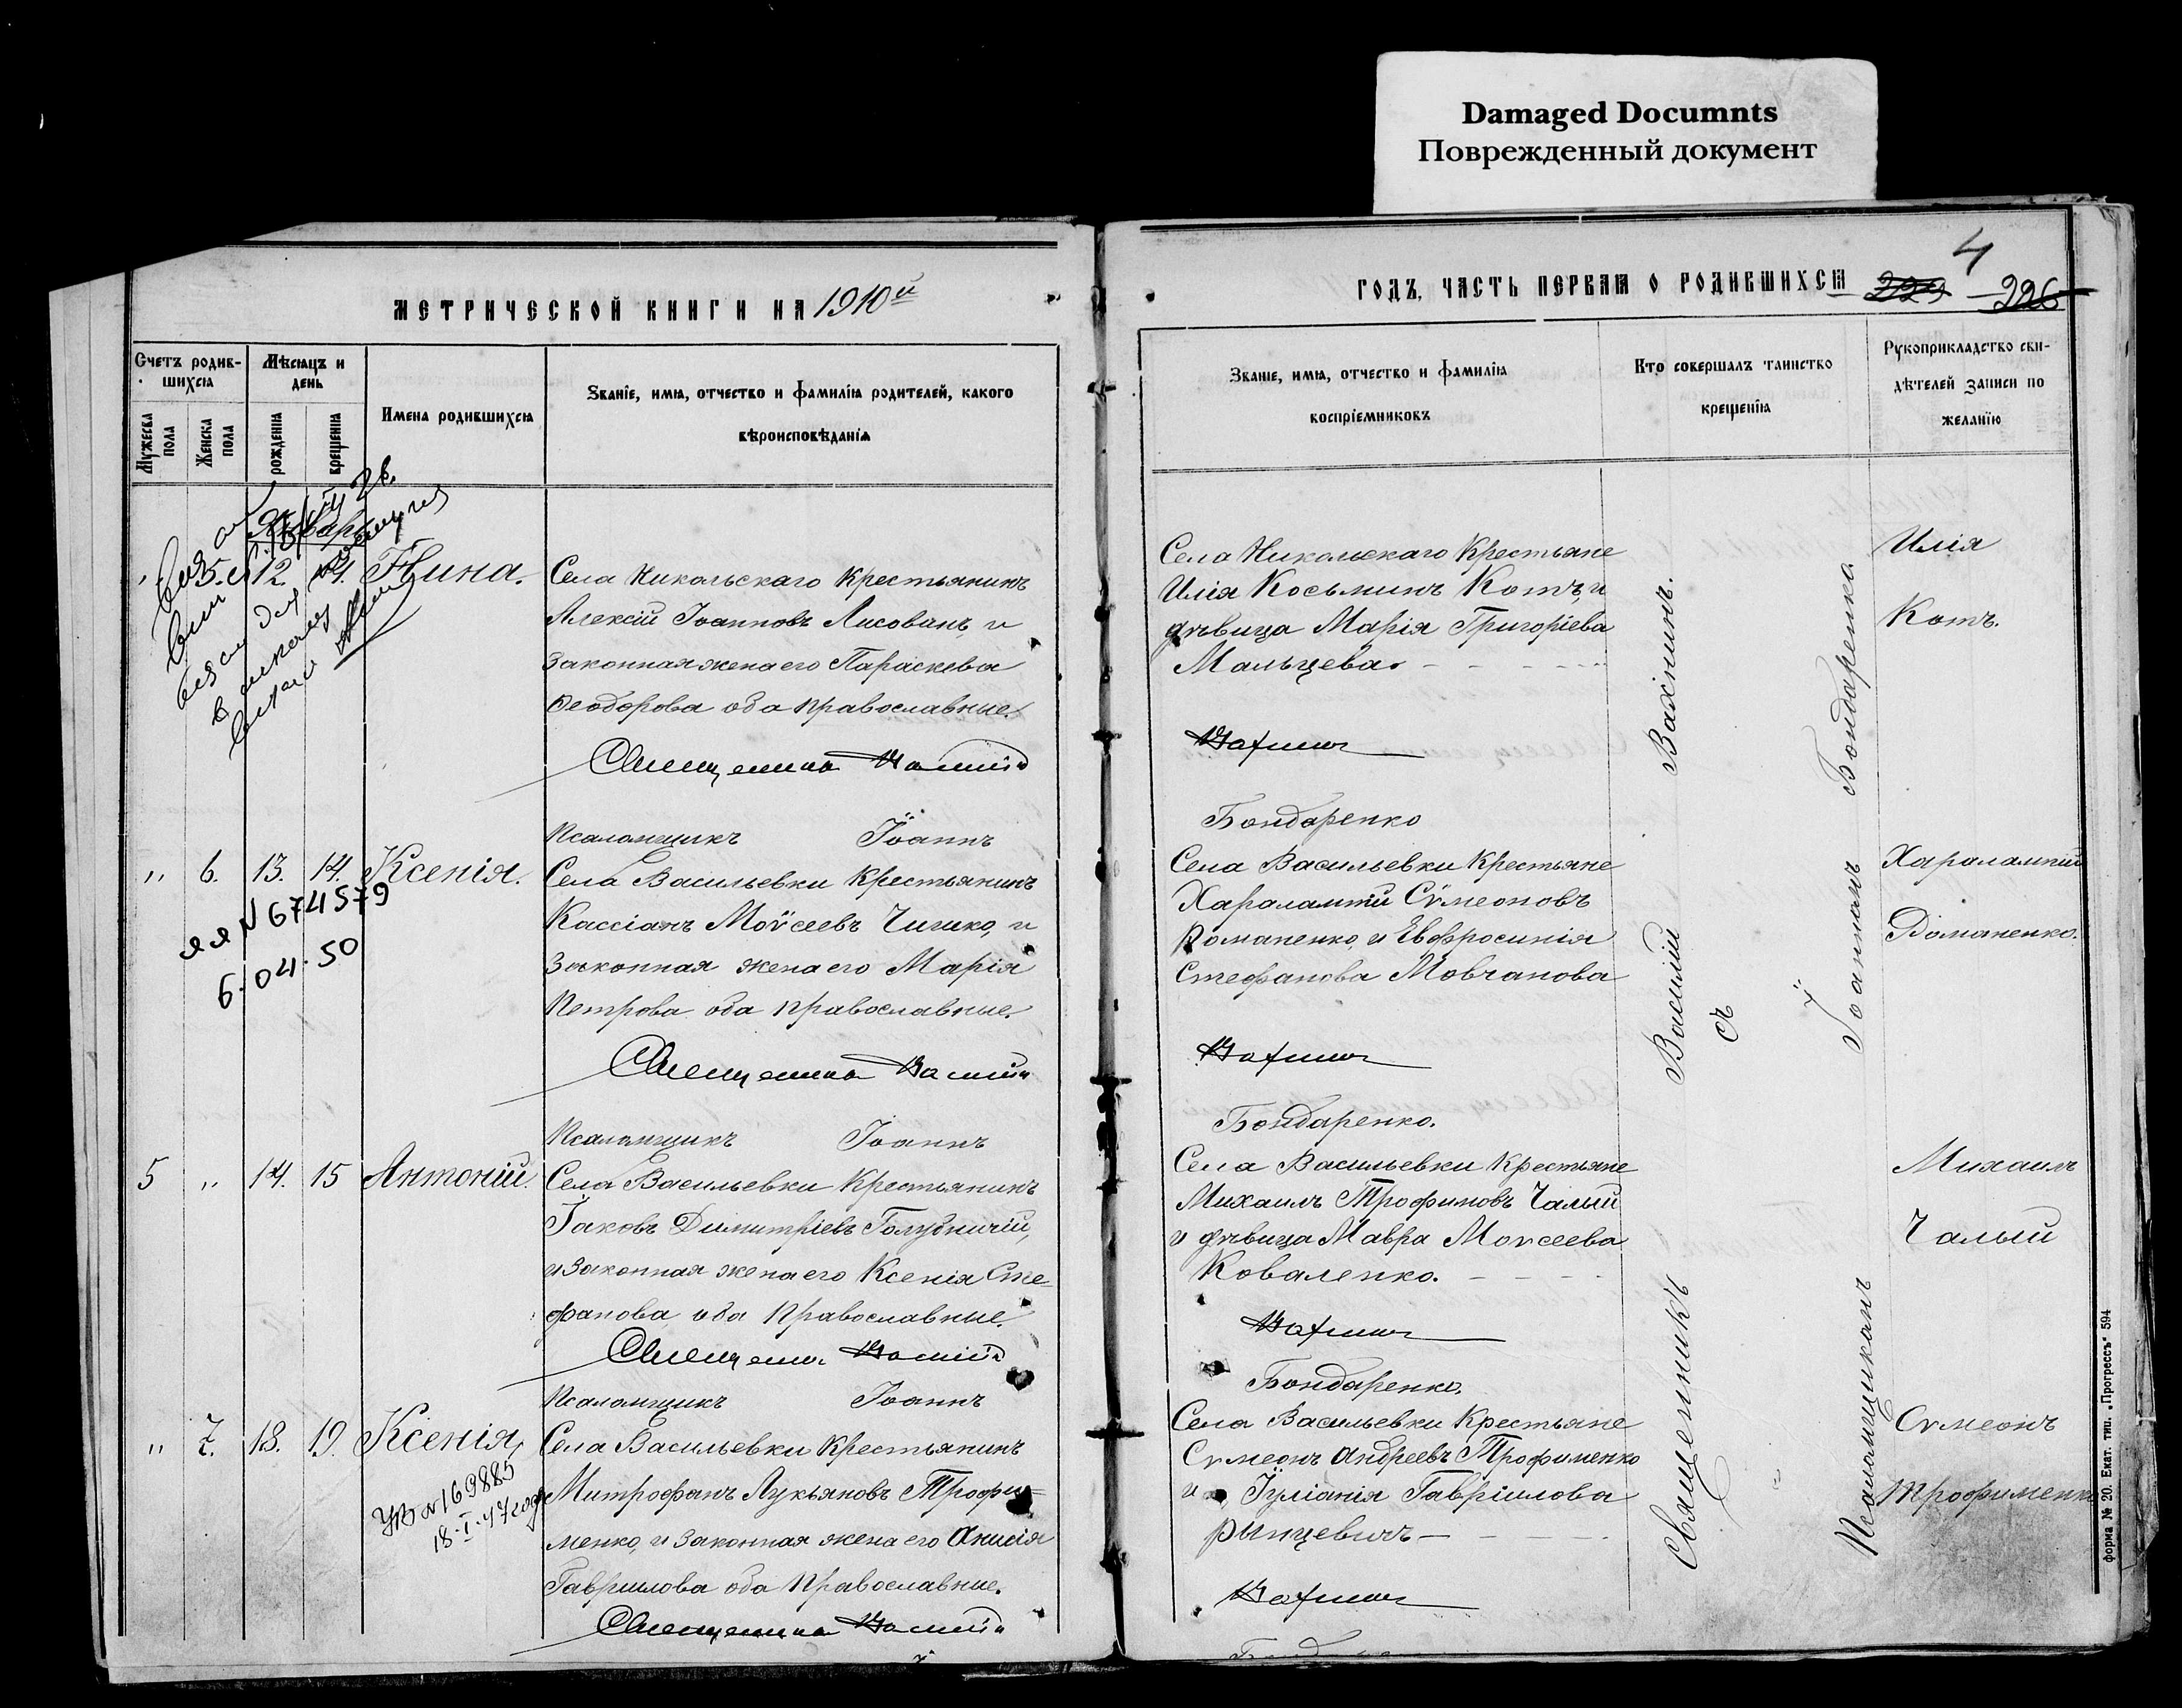 Damaged Documnts
Поврежденный документ
МЕТРИЧЕСКОЙ КНИГИ НА 1910й
Счетъ родив-
шихся
Мѣсяцъ и
день
Мужеска
пола
Женска
пола
рожденія
крещенія
Имена родившихся
Званіе, имя, отчество и фамилія родителей, какого
вѣроисповѣданія
Январь
" 5. 12. Нина.
Села Никольскаго Крестьянинъ
Алексій Іоанновъ Лисованъ, и
законная жена его Параскева
Ѳеодорова оба православные.
Священникъ Василій
Псаломщикъ Іоаннъ
" 6. 13. 14. Ксенія.
яя N 674579
6.04.50
Села Васильевки Крестьянинъ
Кассіанъ Моѵсеевъ Чишко, и
законная жена его Марія
Петрова оба православные.
Священникъ Василій
Псаломщикъ Іоаннъ
5 " 14. 15 Антоній.
Села Васильевки Крестьянинъ
Іаковъ Димитріевъ Голубничій,
и законная жена его Ксенія Сте-
фанова, оба Православные.
Священникъ Василій
Псаломщикъ Іоаннъ
" 7. 18. 19. Ксенія,
N 169885
18.I.47 года
Села Васильевки Крестьянинъ
Митрофанъ Лукьяновъ Трофи-
менко, и законная жена его Анисія
Гавриилова оба Православные.
Священникъ Василій
ГОДЪ, ЧАСТЬ ПЕРВАЯ О РОДИВШИХСЯ
4
226
Званіе, имя, отчество и фамилія
воспріемниковъ
Кто совершалъ таинство
крещенія
Рукоприкладство сви-
дѣтелей записи по
желанію
Села Никольскаго Крестьяне
Илія Косьминъ Котъ, и
дѣвица Марія Григоріева
Мальцева.
Вахнинъ
Бондаренко
Села Васильевки Крестьяне
Харалампій Сѵмеоновъ
Романенко, и Евфросинія
Стефанова Мовчанова
Вахнинъ
Бондаренко.
Села Васильевки Крестьяне
Михаилъ Трофимовъ Чалый
и дѣвица Мавра Моѵсеева
Коваленко.
Вахнинъ
Бондаренко.
Села Васильевки Крестьяне
Сѵмеонъ Андреевъ Трофименко
и Іуліанія Гавріилова
Рынцевичъ
Вахнинъ
Священникъ Василій Вахнинъ.
съ
Псаломщикомъ Іоанномъ Бондаренко.
Илія
Котъ.
Харалампій
Романенко.
Михаилъ
Чалый
Сѵмеонъ
Трофименко
форма № 20. Екат. тип. „Прогрессъ" 594